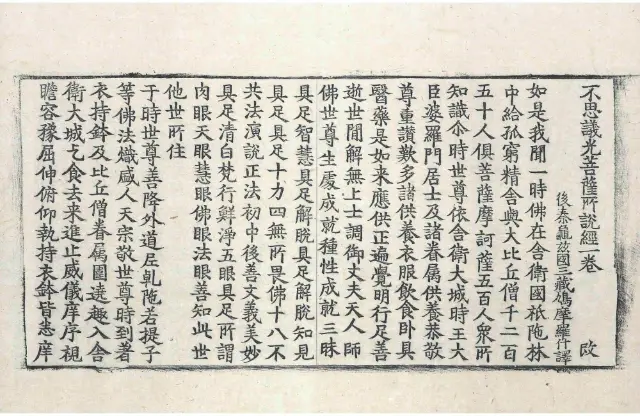 不思議光菩薩所說經一卷 攺
後秦龜兹國三藏鳩摩羅什譯
如是我聞一時佛在舍衛國祇陁林
中給孤窮精舍與大比丘僧千二百
五十人俱菩薩摩訶薩五百人衆所
知識尒時世尊依舍衛大城時王大
臣婆羅門居士及諸眷属供養恭敬
尊重讚歎多諸供養衣服飲食卧具
醫藥是如来應供正遍覺明行足善
逝世間解無上士調御丈夫天人師
佛世尊生處成就種性成就三昧
具足智慧具足解脫具足解脫知見
具足具足十力四無所畏佛十八不
共法演說正法初中後善文義美妙
具足清白梵行鮮淨五眼具足所謂
肉眼天眼慧眼佛眼法眼善知此世
他世所住
于時世尊善降外道尼乹陁若提子
等佛法熾盛人天宗敬世尊時到著
衣持鉢及比丘僧眷属圍遶趣入舍
衛大城乞食去来進止威儀庠序視
瞻容豫屈伸俯仰執持衣鉢皆悉庠